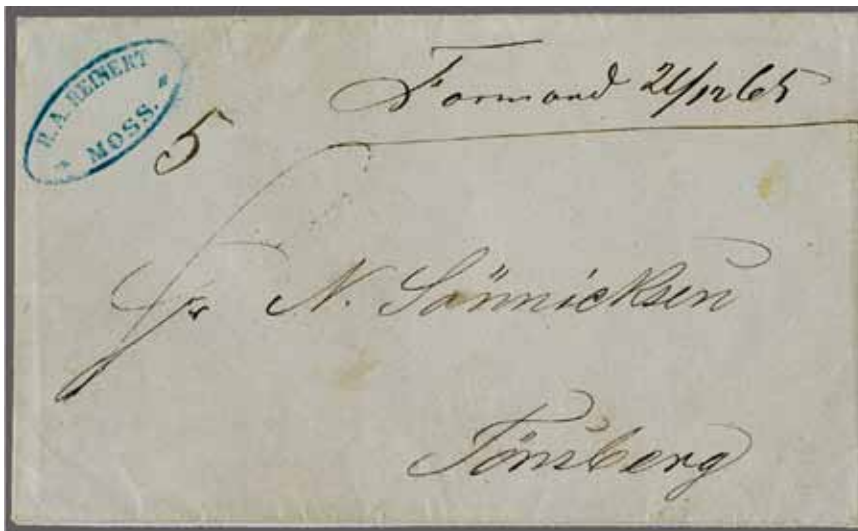 R.A. REINERT
MOSS.
5
Formand 21/12 65
Hr N. Sönnicksen
Tönsberg